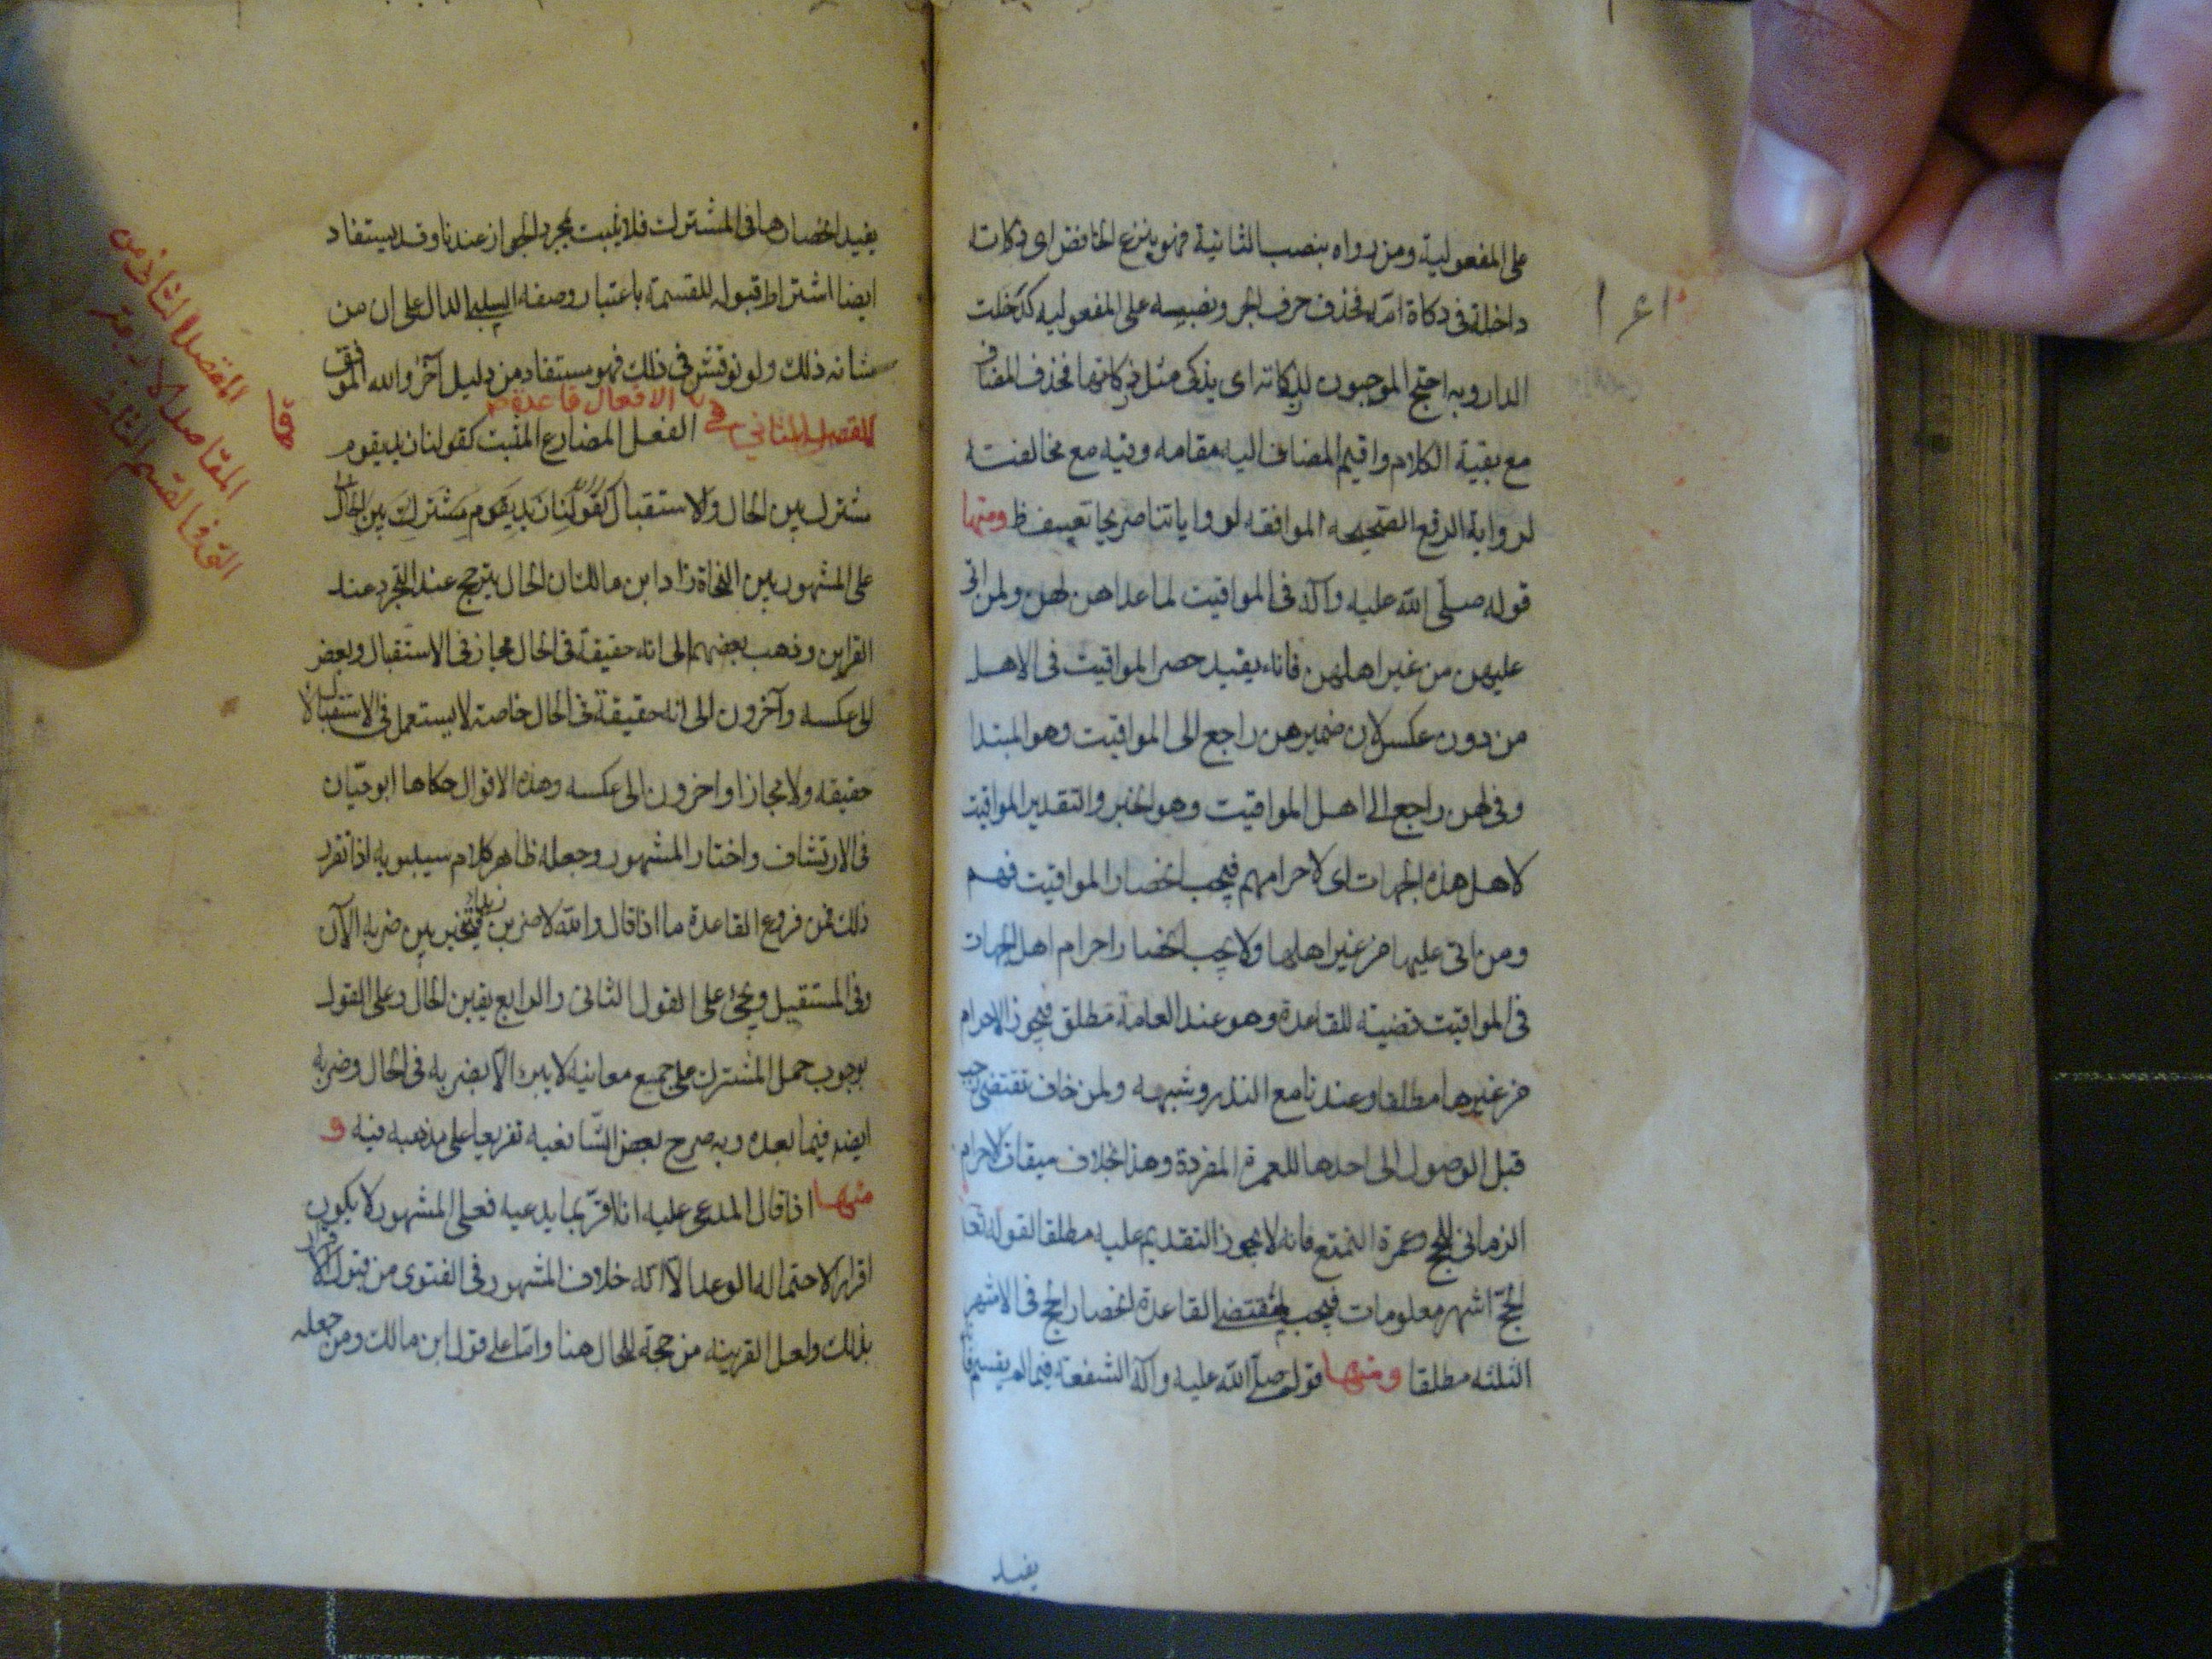 على المفعولية ومن رواه بنصب الثانية فهو بنزع الخافض اى ذكاته
داخلة فى ذكاة امه فحذف حرف الجر ونصبه على المفعوليه كدخلت
الدار وبه احتج الموجبون لذكاته اى يذكى مثل ذكاتها فحذف المضاف
مع بقية الكلام واقيم المضاف اليه مقامه وفيه مع مخالفته
لرواية الرفع الصحيحه الموافقه لرواياتنا صريحا تعسف ظ ومنها
قوله صلّى الله عليه وآله فى المواقيت لما عداهن لهن ولمن اتى
عليهن من غير اهلهن فانه يفيد حصر المواقيت فى الاهل
من دون عكس لان ضمير هن راجع الى المواقيت وهو المبتدا
وفى لهن راجع الى اهل المواقيت وهو الخبر والتقدير المواقيت
لاهل هذه الجهات اى لاحرامهم فيجب انحصار المواقيت فهم
ومن اتى عليها من غير اهلها ولا يجب انحصار احرام اهل الجهات
فى المواقيت قضية للقاعدة وهو عند العامة مطلق فيجوز الاحرام
من غيرها مطلقا وعندنا مع النذر وشبهه ولمن خاف تقضى رجب
قبل الوصول الى احدها للعمرة المفردة وهذا بخلاف ميقات الاحرام
الزمانى للحج وعمرة التمتع فانه لا يجوز التقديم عليه مطلقا لقوله تعا
الحجّ اشهر معلومات فيجب بمقتضى القاعدة انحصار الحج فى الاشهر
الثلثه مطلقا ومنها قوله صلّى الله عليه وآله الشفعة فيما لم يقسم فا
يفيد
١٤١
يفيد انحصارها فى المشترك فلا يثبت بمجرد الجواز عندنا وقد يستفاد
ايضا اشتراط قبوله للقسمة باعتبار وصفه السلبى الدال على ان من
شانه ذلك ولو نوقش فى ذلك فهو مستفاد من دليل آخر والله الموفق
المقصد الثانى فى الافعال قاعدة الفعل المضارع المثبت كقولنا زيد يقوم
مشترك بين الحال والاستقبال كقولنا زيد يقوم مشترك بين الحال
على المشهور بين النحاة زاد ابن مالك ان الحال يترجح عند التجرد عند
القراين وذهب بعضهم الى انه حقيقة فى الحال مجاز فى الاستقبال وبعض
الى عكسه وآخرون الى انه حقيقة فى الحال خاصة لا يستعمل فى الاستقبال لا
حقيقه ولا مجازا واخرون الى عكسه وهذه الاقوال حكاها ابو حيّان
فى الارتشاف واختار المشهور وجعله ظاهر كلام سيبويه اذا تقرر
ذلك فمن فروع القاعدة ما اذا قال والله لاضربن زيدا فيتخير بين ضربه الآن
وفى المستقبل ويجئ على القول الثانى والرابع يقين الحال وعلى القول
بوجوب حمل المشترك على جميع معانيه لا يبر الا بضربه فى الحال وضربه
ايضا فيما بعده وبه صرح بعض الشّافعيه تفريعا على مذهبه فيه و
منها اذا قال المدعى عليه انا اقرّ بما يدعيه فعلى المشهور لا يكون
اقرارا لاحتماله الوعد الا انه خلاف المشهور فى الفتوى من قبول الاقرار
بذلك ولعل القرينه مرجحة للحال هنا وامّا على قول ابن مالك ومن جعله
المقصد الثانى من
المقاصد الاربعة